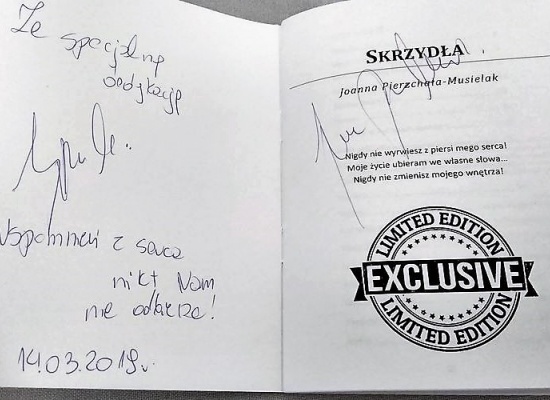 Ze specjalną
dedykacją
Wspomnień z serca
nikt Nam
nie odbierze!
14.03.2019r.
SKRZYDŁA
Joanna Pierzchała-Musielak
Nigdy nie wyrwiesz z piersi mego serca!
Moje życie ubieram we własne słowa...
Nigdy nie zmienisz mojego wnętrza!
LIMITED EDITION
EXCLUSIVE
LIMITED EDITION